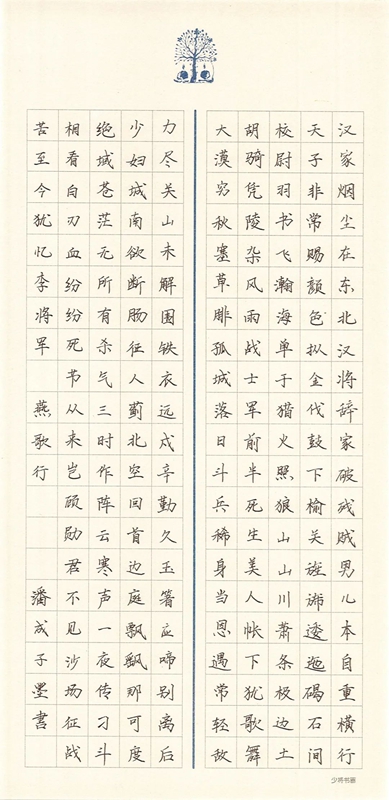 汉家烟尘在东北汉将辞家破残贼男儿本自重横行
天子非常赐颜色拟金伐鼓下榆关旌旆逶迤碣石间
校尉羽书飞瀚海单于猎火照狼山山川萧条极边土
胡骑凭陵杂风雨战士军前半死生美人帐下犹歌舞
大漠穷秋塞草腓孤城落日斗兵稀身当恩遇常轻敌
力尽关山未解围铁衣远戍辛勤久玉箸应啼别离后
少妇城南欲断肠征人蓟北空回首边庭飘飘那可度
绝域苍茫无所有杀气三时作阵云寒声一夜传刁斗
相看白刃血纷纷死节从来岂顾勋君不见沙场征战
苦至今犹忆李将军 燕歌行 潘成子墨書
少将书画